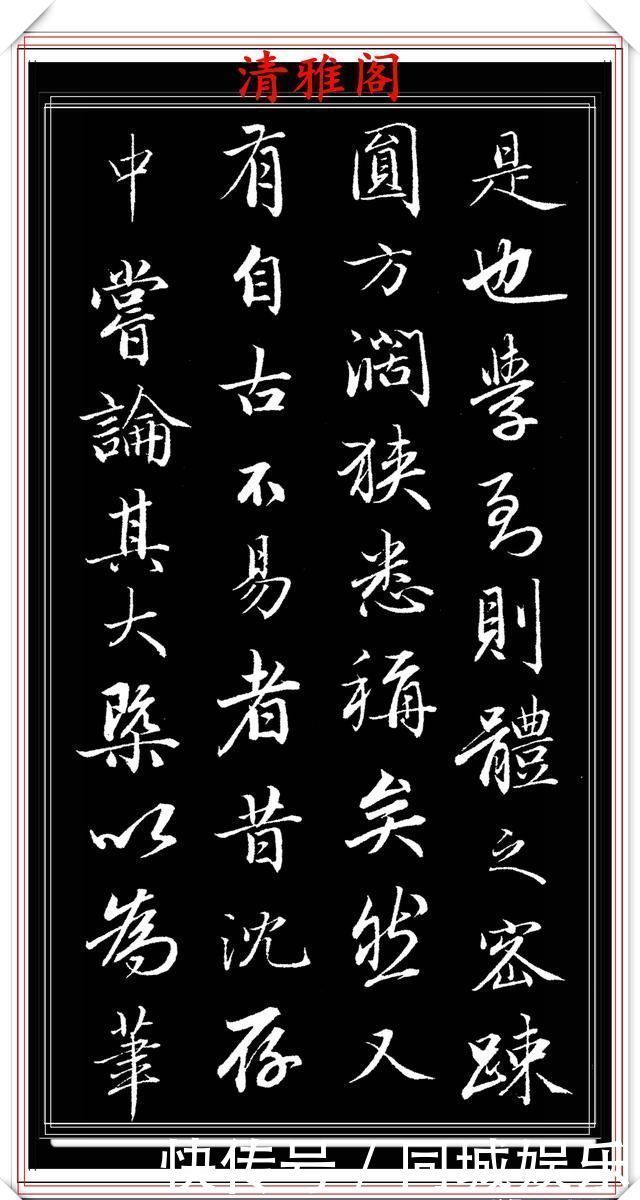 清雅阁
是也學到則體之密疎
圓方濶狹悉稱矣然又
有自古不易者昔沈存
中嘗論其大槩以為筆
快传号/同城娱乐